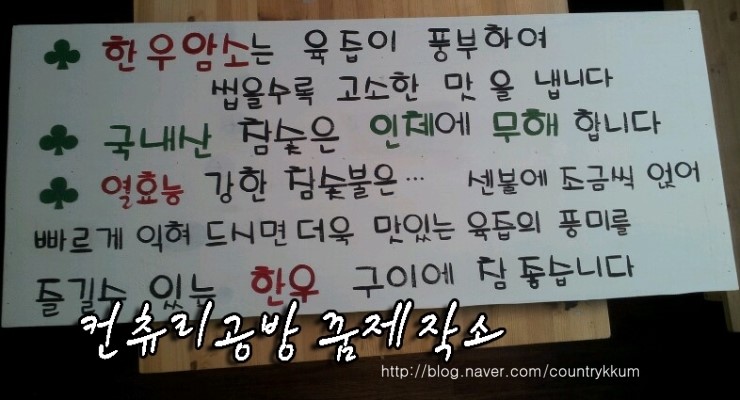 ♣ 한우암소는 육즙이 풍부하여
씹을수록 고소한 맛을 냅니다
♣ 국내산 참숯은 인체에 무해 합니다
♣ 열효능 강한 참숯불은… 센불에 조금씩 얹어
빠르게 익혀 드시면 더욱 맛있는 육즙의 풍미를
즐길수 있는 한우 구이에 참 좋습니다
컨츄리공방 꿈제작소
http://blog.naver.com/countrykkum